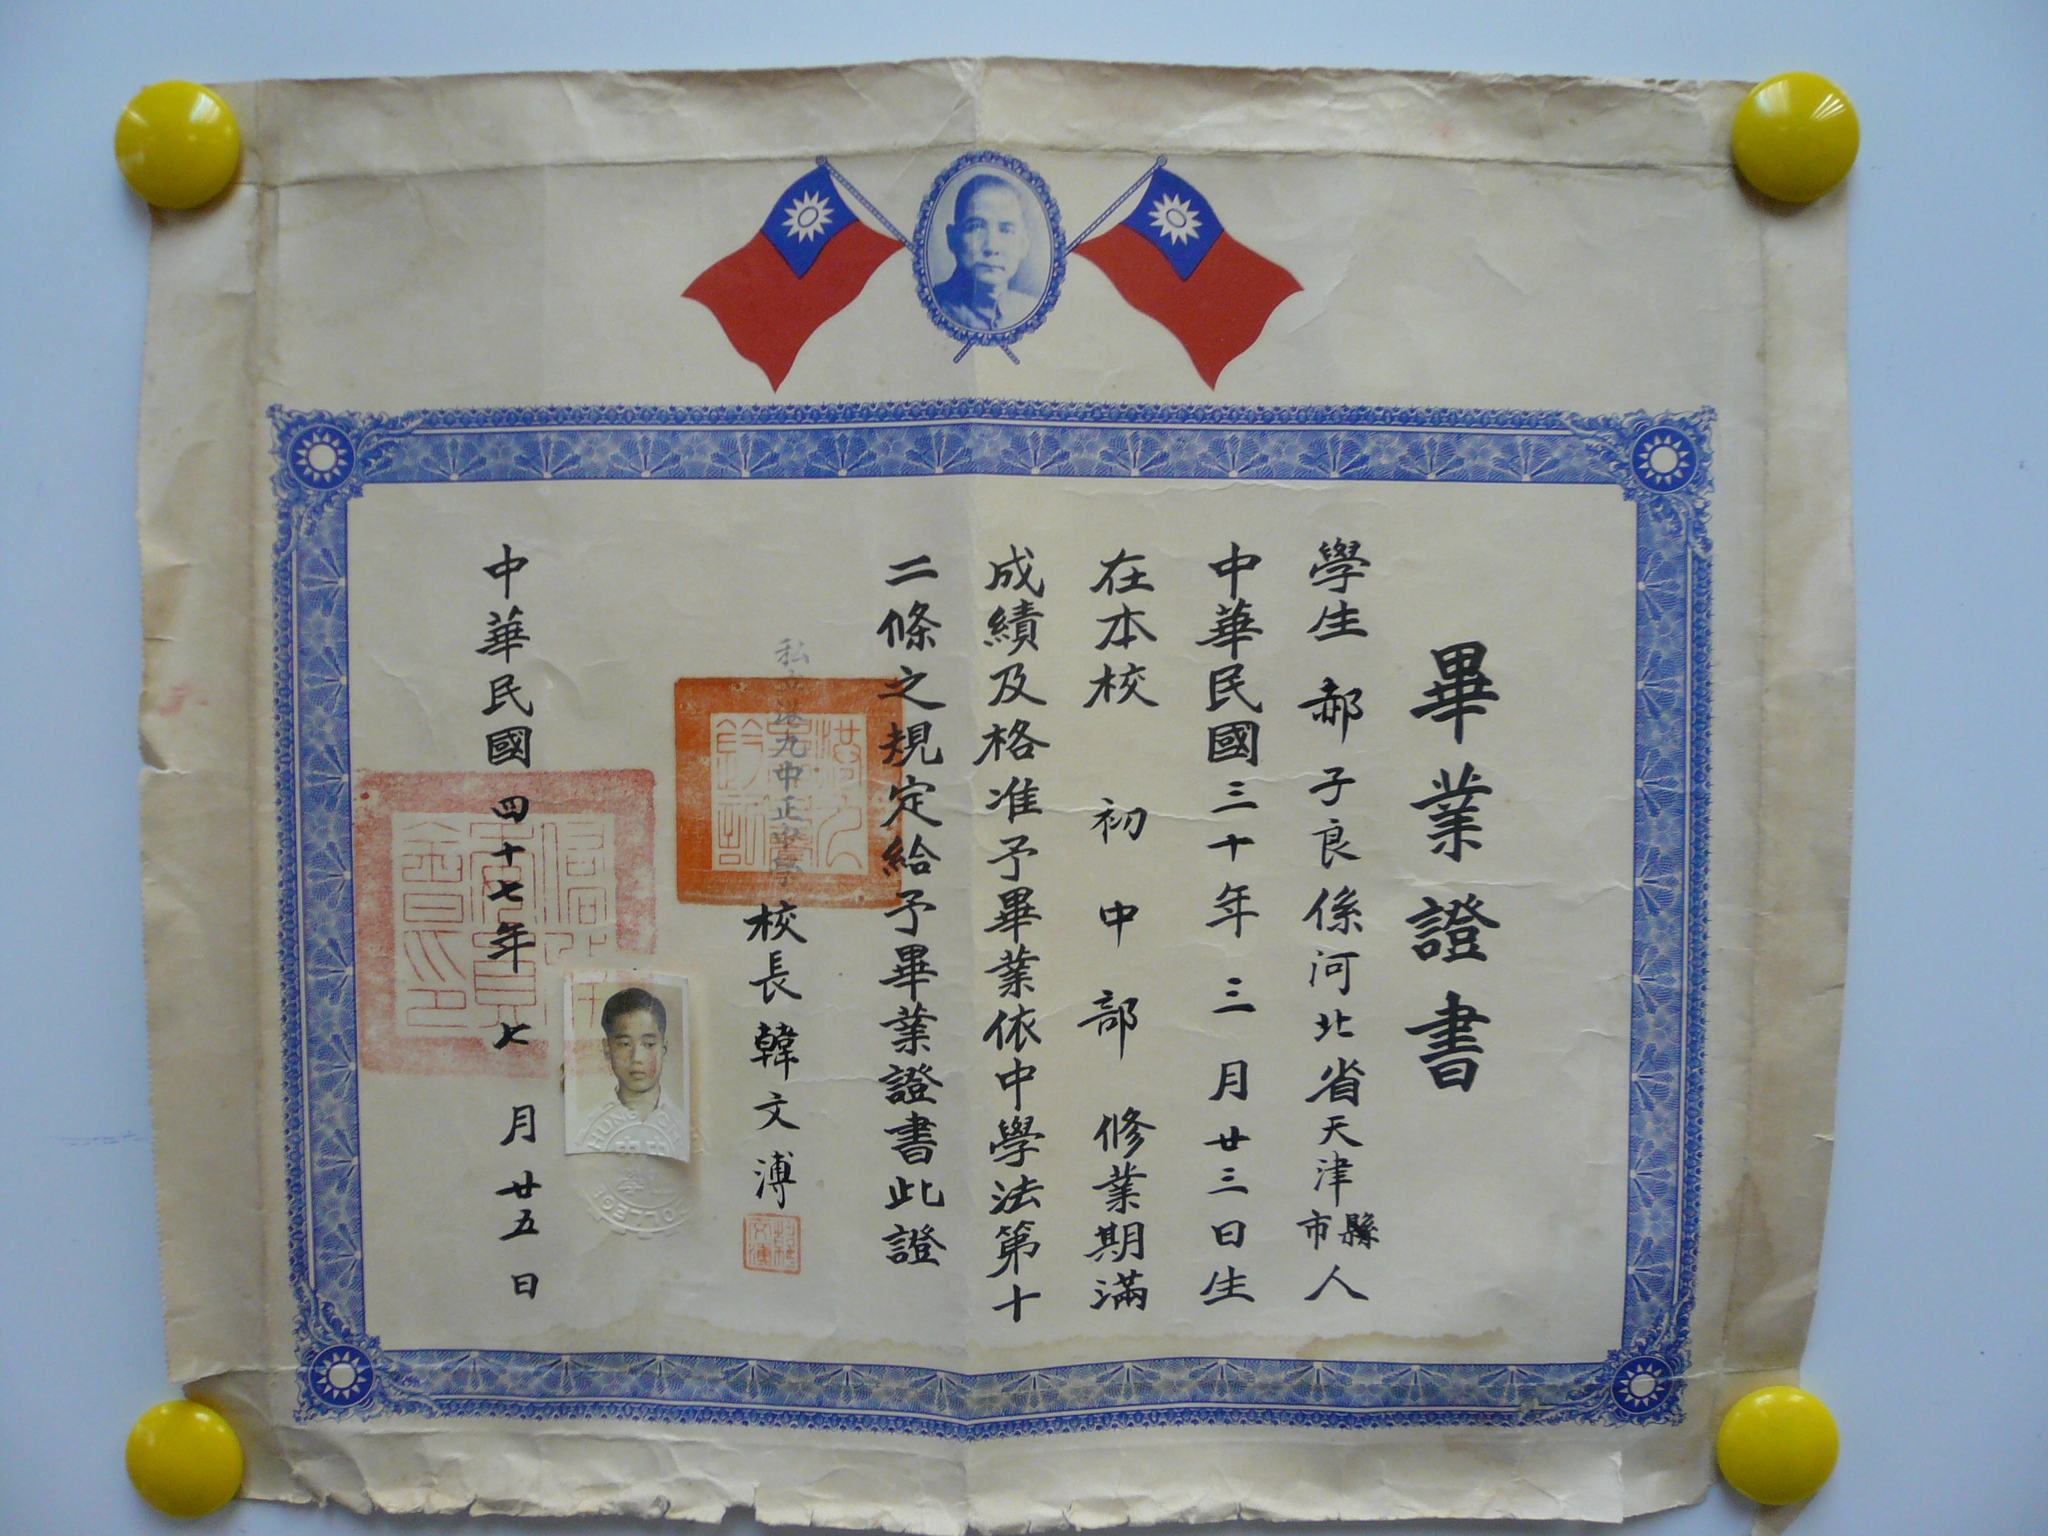 畢業證書
學生郝子良係河北省天津縣市人
中華民國三十年三月廿三日生
在本校初中部修業期滿
成績及格准予畢業依中學法第十
二條之規定給予畢業證書此證
私立港九中正中學
校長韓文溥
中華民國四十七年七月廿五日